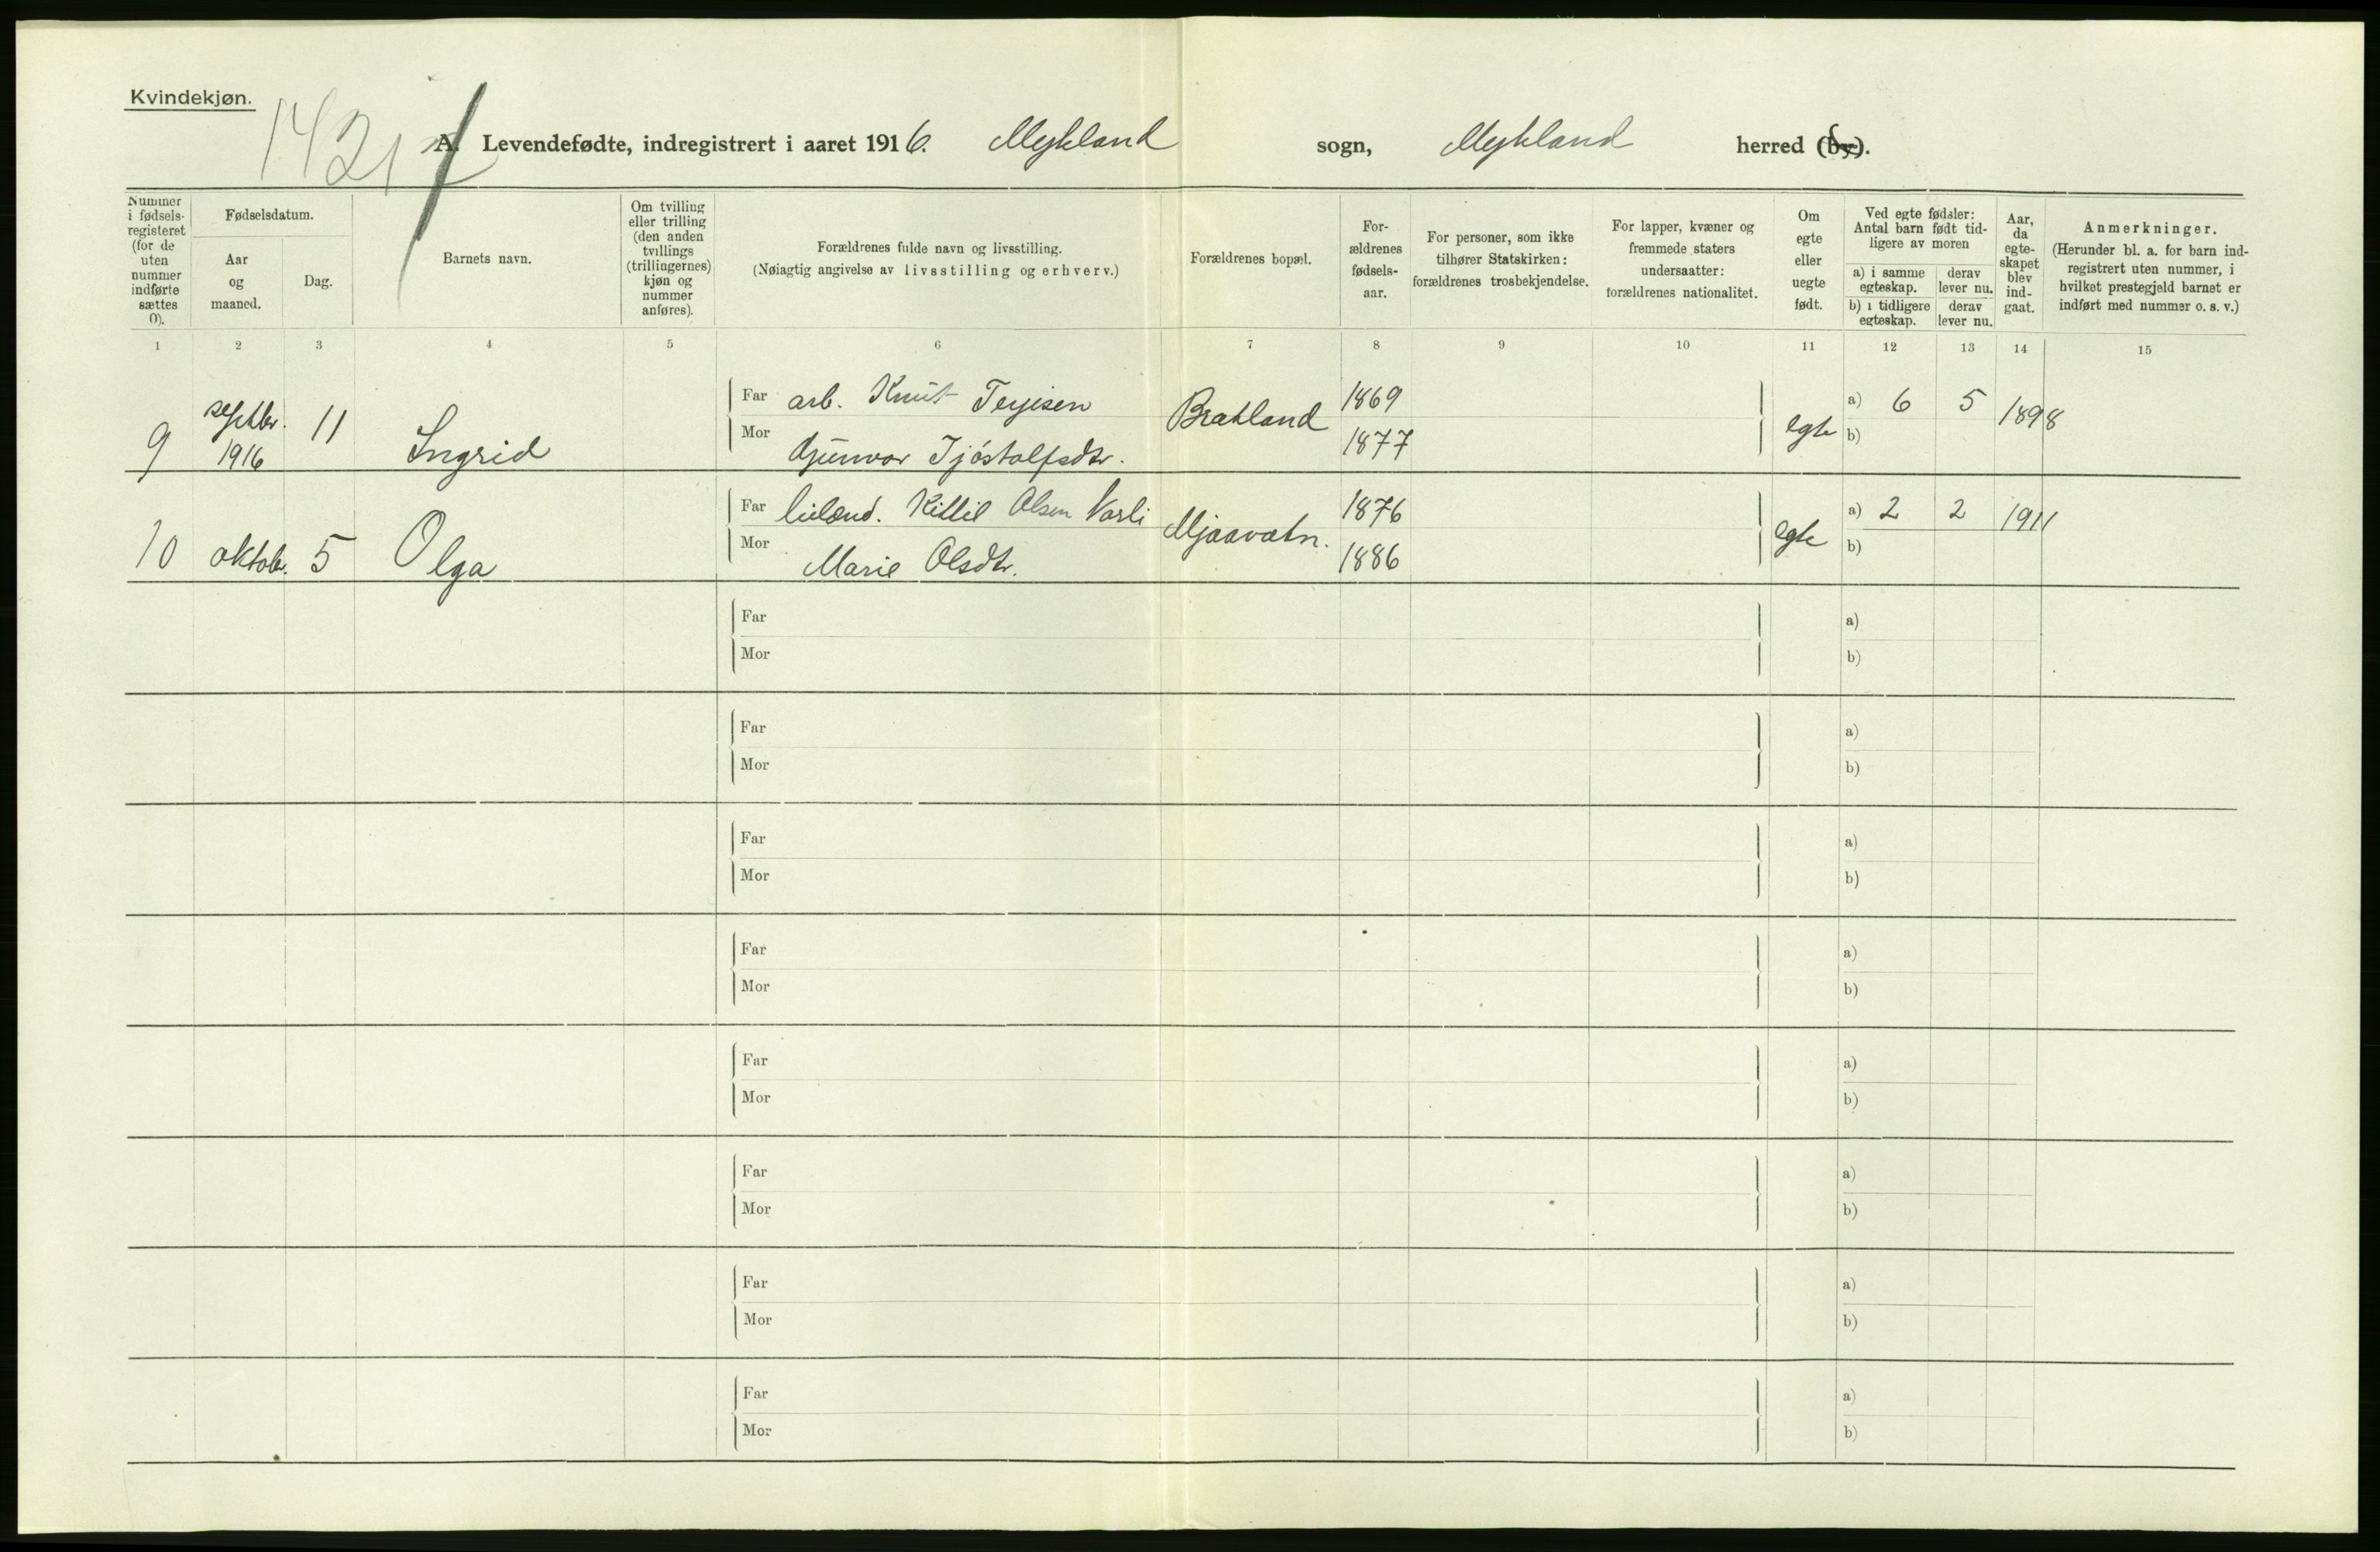 Kvindekjøn.
A. Levendefødte, indregistrert i aaret 1916. Mykland sogn, Mykland herred (by).
Nummer i fødselsregisteret (for de uten nummer indførte sættes 0).
Fødselsdatum.
Aar og maaned.
Dag.
Barnets navn.
Om tvilling eller trilling (den anden tvillings (trillingernes) kjøn og nummer anføres).
Forældrenes fulde navn og livsstilling.
(Nøiagtig angivelse av livsstilling og erhverv.)
Forældrenes bopæl.
Forældrenes fødselsaar.
For personer, som ikke tilhører Statskirken: forældrenes trosbekjendelse.
For lapper, kvæner og fremmede staters undersaatter: forældrenes nationalitet.
Om egte eller uegte født.
Ved egte fødsler: Antal barn født tidligere av moren
a) i samme egteskap.
derav lever nu.
b) i tidligere egteskap.
derav lever nu.
Aar, da egteskapet blev indgaat.
Anmerkninger.
(Herunder bl. a. for barn indregistrert uten nummer, i hvilket prestegjeld barnet er indført med nummer o. s. v.)
1 2 3 4 5 6 7 8 9 10 11 12 13 14 15
9 septbr. 1916 11 Ingrid
Far arb. Knut Terjesen Bratland 1869 egte a) 6 5 1898
Mor Gunvor Tjóstolfsdtr. 1877 b)
10 oktobr. 5 Olga
Far Kittil Olsen Varli Mjaavatn. 1876 egte a) 2 2 1911
Mor Marie Olsdtr. 1886 b)
Far a)
Mor b)
Far a)
Mor b)
Far a)
Mor b)
Far a)
Mor b)
Far a)
Mor b)
Far a)
Mor b)
Far a)
Mor b)
Far a)
Mor b)